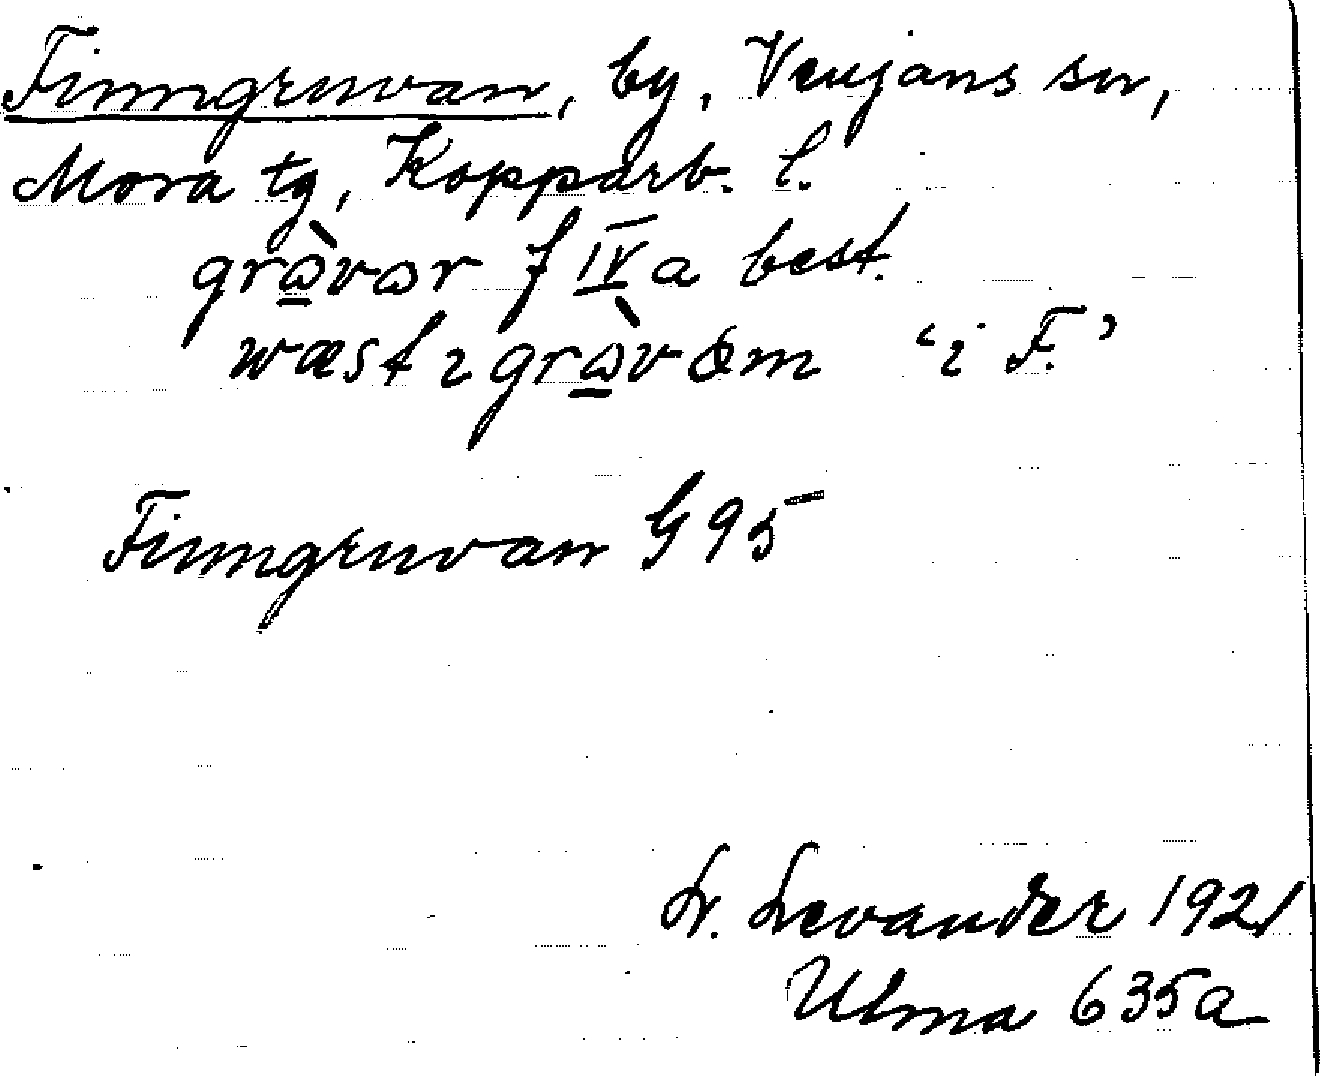 Finngruvan, by, Venjans sn,
Mora tg, Kopparb. l.
grὼ̱vωr f IV a best.
wæst ı grὼ̱vǫm ‘i F.’
Finngruvan G 95
L. Levander 1921
Ulma 635a